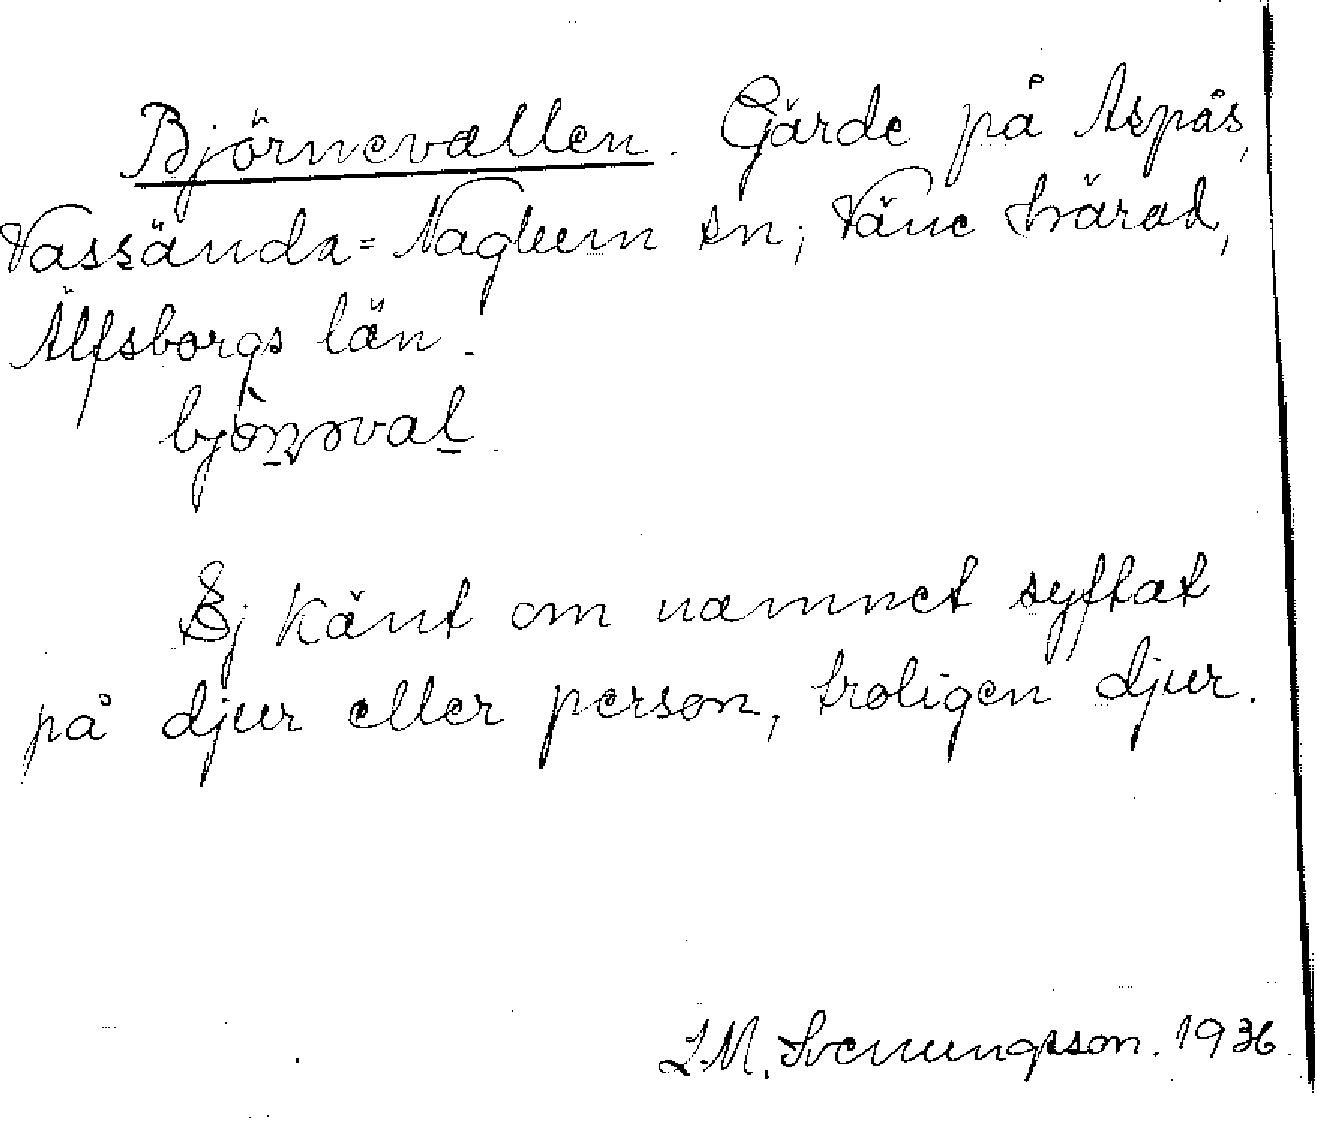 Björnevallen. Gärde på Aspås,
Vassända=Naglum sn; Väne härad,
Älfsborgs län.
Ej känt om namnet syftat
på djur eller person, troligen djur.
L.M. Svenungsson. 1936